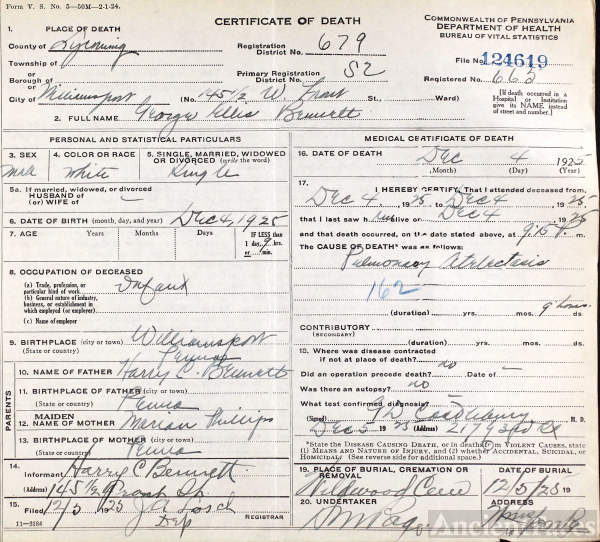 Form V. S. No. 5—50M—2-1-24.
CERTIFICATE OF DEATH
COMMONWEALTH OF PENNSYLVANIA
DEPARTMENT OF HEALTH
BUREAU OF VITAL STATISTICS
1. PLACE OF DEATH
County of Lycoming
Registration District No. 679
File No. 124619
Township of
or
Borough of
or
Primary Registration District No. 52
Registered No. 665
City of Williamsport (No. 145 1/2 W. Front St., Ward)
[If death occurred in a Hospital or Institution give its NAME instead of street and number.]
2. FULL NAME George Ellis Bennett
PERSONAL AND STATISTICAL PARTICULARS
3. SEX 4. COLOR OR RACE 5. SINGLE, MARRIED, WIDOWED OR DIVORCED (write the word)
Male White Single
5a. If married, widowed, or divorced
HUSBAND of
(or) WIFE of
6. DATE OF BIRTH (month, day, and year) Dec 4, 1925
7. AGE Years Months Days IF LESS than 1 day, 9 hrs. or min.
8. OCCUPATION OF DECEASED
(a) Trade, profession, or particular kind of work Infant
(b) General nature of industry, business, or establishment in which employed (or employer)
(c) Name of employer
9. BIRTHPLACE (city or town) Williamsport
(State or country) Penna
PARENTS
10. NAME OF FATHER Harry C. Bennett
11. BIRTHPLACE OF FATHER (city or town)
(State or country) Penna
12. MAIDEN NAME OF MOTHER Marian Phillips
13. BIRTHPLACE OF MOTHER (city or town)
(State or country) Penna
14. Informant Harry C Bennett
(Address) 145 1/2 Front St.
15. Filed 12/5 1925 Losch
Dep REGISTRAR
11—3184
MEDICAL CERTIFICATE OF DEATH
16. DATE OF DEATH Dec 4 1925
(Month) (Day) (Year)
17. I HEREBY CERTIFY, That I attended deceased from
Dec 4, 1925, to Dec 4, 1925,
that I last saw him alive on Dec 4, 1925
and that death occurred, on the date stated above, at 9:15 P. m.
The CAUSE OF DEATH* was as follows:
Pulmonary Atelectasis
162
(duration) yrs. mos. 9 hours ds.
CONTRIBUTORY
(Secondary)
(duration) yrs. mos. ds.
18. Where was disease contracted
if not at place of death? no
Did an operation precede death? no Date of
Was there an autopsy? no
What test confirmed diagnosis?
(Signed) M. D.
Dec 5 1925 (Address)
*State the DISEASE CAUSING DEATH, or in deaths from VIOLENT CAUSES, state (1) MEANS AND NATURE OF INJURY, and (2) whether ACCIDENTAL, SUICIDAL, or HOMICIDAL. (See reverse side for additional space.)
19. PLACE OF BURIAL, CREMATION OR REMOVAL DATE OF BURIAL
Wildwood Cem 12/5/25 19
20. UNDERTAKER ADDRESS
AncientFaces